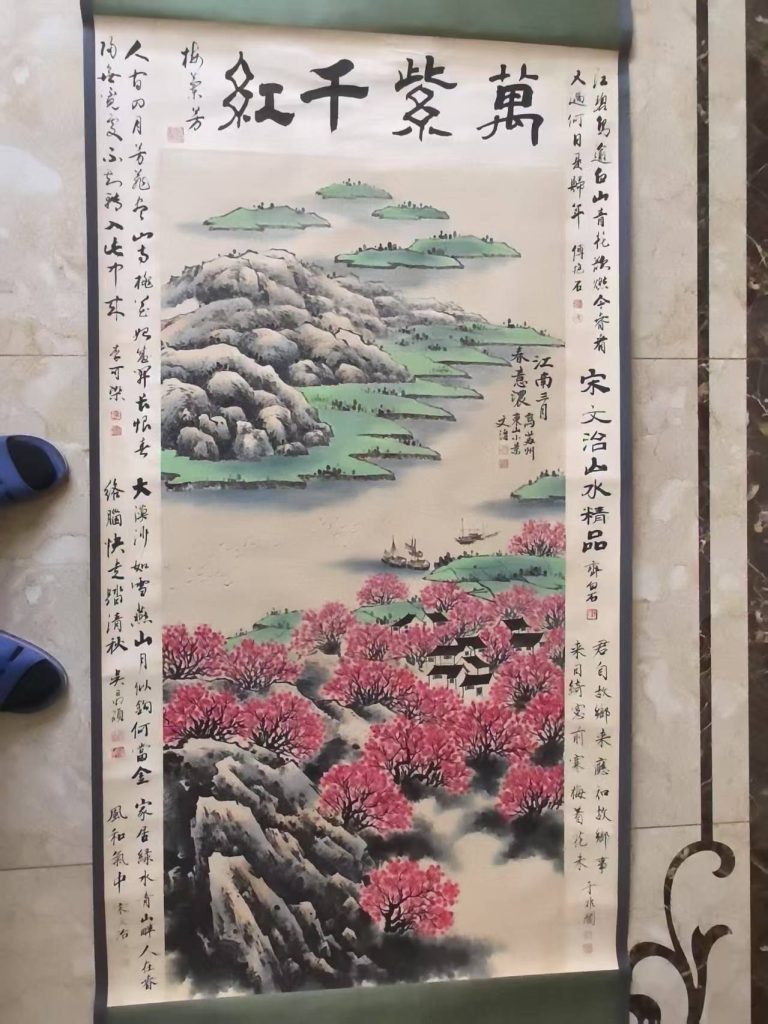 萬紫千紅
梅蘭芳
江碧鳥逾白山青花欲燃今春看
又過何日是歸年 傅抱石
宋文治山水精品 齊白石
君自故鄉來應知故鄉事
來日綺窗前寒梅著花未 于非闇
江南三月
春意濃
寫蘇州
東山小景
文治
人間四月芳菲盡山寺桃花始盛開長恨春
歸無覓處不知轉入此中來 李可染
大漠沙如雪燕山月似鉤何當金
絡腦快走踏清秋 吳昌碩
家居綠水青山畔人在春
風和氣中 宋文治